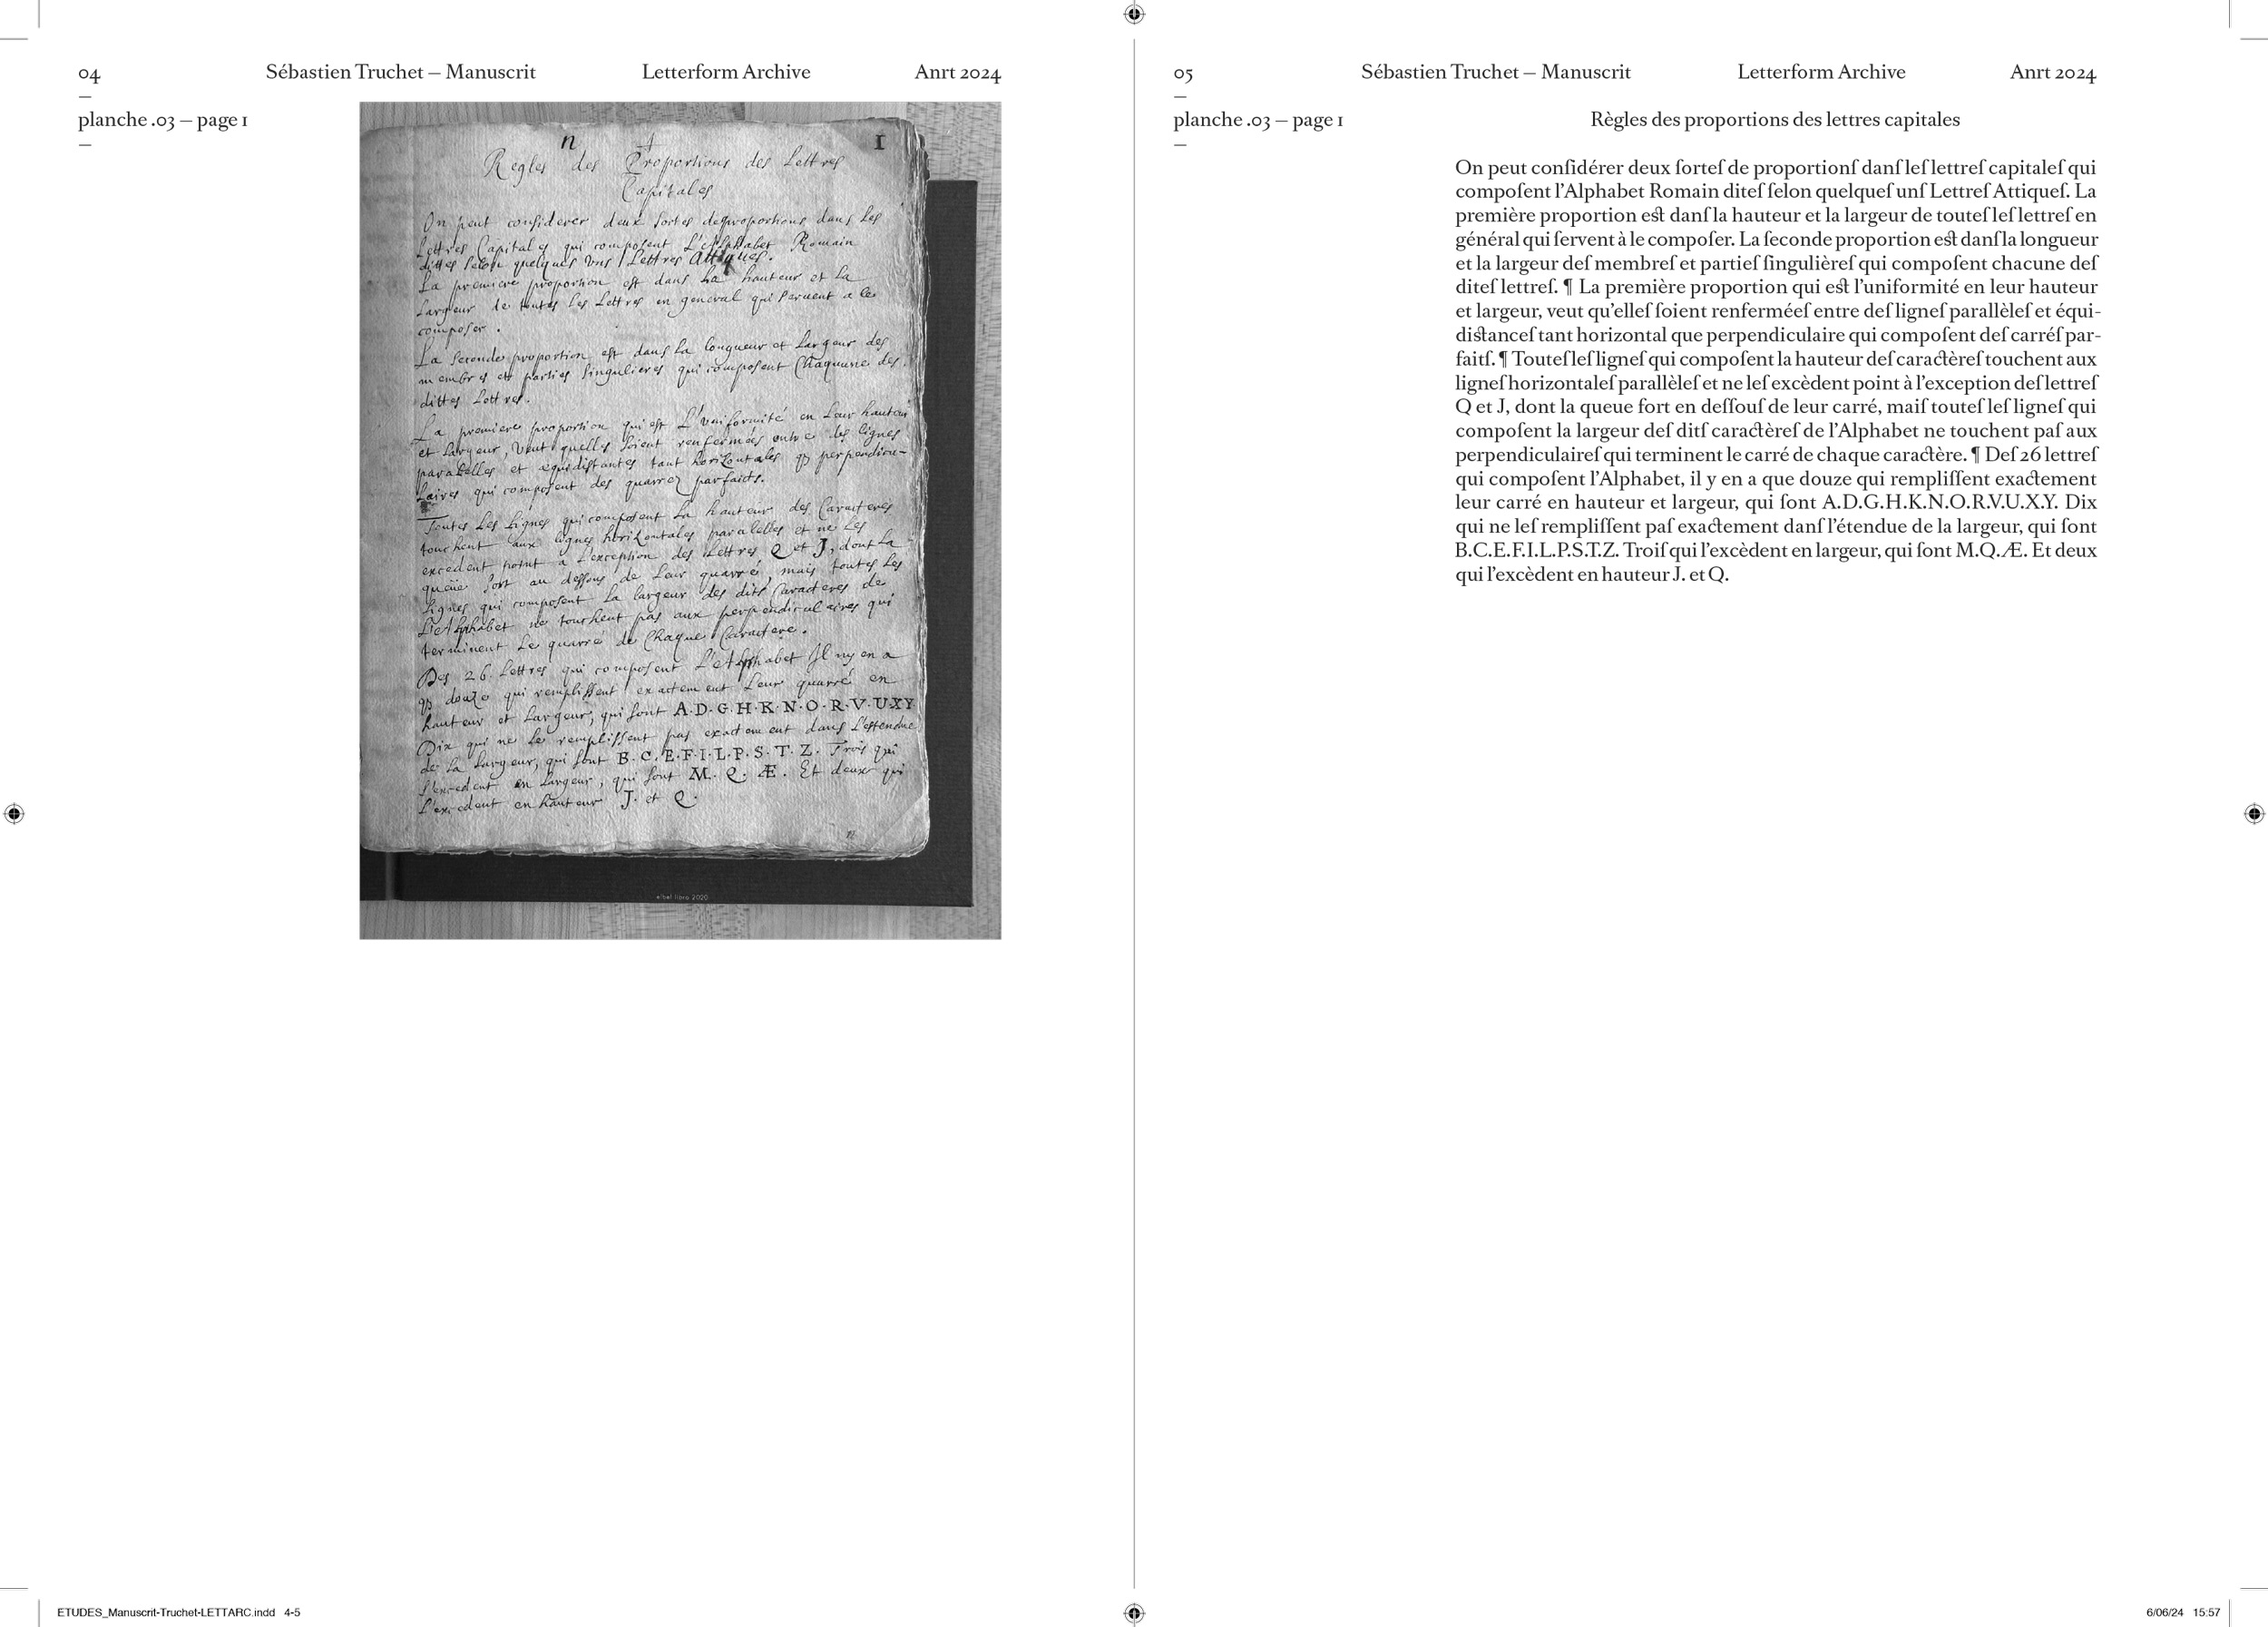 04
Sébastien Truchet – Manuscrit
Letterform Archive
Anrt 2024
–
planche .03 – page 1
–
n
1
Regles des Proportions des Lettres
Capitales
On peut considerer deux sortes de proportions dans les
Lettres Capitales qui composent L'Alphabet Romain
dittes selon quelques uns Lettres Attiques.
La premiere proportion est dans la hauteur et la
Largeur de toutes les Lettres en general qui servent a le
composer.
La seconde proportion est dans la longueur et Largeur des
membres et parties singulieres qui composent Chaquune des
dittes Lettres.
La premiere proportion qui est L'uniformité en Leur hauteur
et Largeur, veut quelles soient renfermées entre des lignes
paralelles et equidistantes tant horizontales que perpendicu-
Laires qui composent des quarrez parfaits.
Toutes Les Lignes qui composent La hauteur des Caracteres
touchent aux lignes horizontales paralelles et ne les
excedent point a L'exception des Lettres Q et J, dont La
queüe sort au dessous de Leur quarré, mais toutes Les
Lignes qui composent La largeur des dits Caracteres de
L'Alphabet ne touchent pas aux perpendiculaires qui
terminent Le quarré de Chaque Caractere.
Des 26 Lettres qui composent L'Alphabet Il ny en a
que douze qui remplissent exactement Leur quarré en
hauteur et Largeur, qui sont A.D.G.H.K.N.O.R.V.U.X.Y
Dix qui ne Le remplissent pas exactement dans L'estendue
de La Largeur, qui sont B.C.E.F.I.L.P.S.T.Z. Trois qui
L'excedent en Largeur, qui sont M. Q. Æ. Et deux qui
L'excedent en hauteur J. et Q.
elbel libro 2020
05
Sébastien Truchet – Manuscrit
Letterform Archive
Anrt 2024
–
planche .03 – page 1
–
Règles des proportions des lettres capitales
On peut conſidérer deux ſorteſ de proportionſ danſ leſ lettreſ capitaleſ qui
compoſent l’Alphabet Romain diteſ ſelon quelqueſ unſ Lettreſ Attiqueſ. La
première proportion eſt danſ la hauteur et la largeur de touteſ leſ lettreſ en
général qui ſervent à le compoſer. La ſeconde proportion eſt danſ la longueur
et la largeur deſ membreſ et partieſ ſingulièreſ qui compoſent chacune deſ
diteſ lettreſ. ¶ La première proportion qui eſt l’uniformité en leur hauteur
et largeur, veut qu’elleſ ſoient renferméeſ entre deſ ligneſ parallèleſ et équi-
diſtanceſ tant horizontal que perpendiculaire qui compoſent deſ carréſ par-
faitſ. ¶ Touteſ leſ ligneſ qui compoſent la hauteur deſ caractèreſ touchent aux
ligneſ horizontaleſ parallèleſ et ne leſ excèdent point à l’exception deſ lettreſ
Q et J, dont la queue fort en deſſouſ de leur carré, maiſ touteſ leſ ligneſ qui
compoſent la largeur deſ ditſ caractèreſ de l’Alphabet ne touchent paſ aux
perpendiculaireſ qui terminent le carré de chaque caractère. ¶ Deſ 26 lettreſ
qui compoſent l’Alphabet, il y en a que douze qui rempliſſent exactement
leur carré en hauteur et largeur, qui ſont A.D.G.H.K.N.O.R.V.U.X.Y. Dix
qui ne leſ rempliſſent paſ exactement danſ l’étendue de la largeur, qui ſont
B.C.E.F.I.L.P.S.T.Z. Troiſ qui l’excèdent en largeur, qui ſont M.Q.Æ. Et deux
qui l’excèdent en hauteur J. et Q.
ETUDES_Manuscrit-Truchet-LETTARC.indd 4-5
6/06/24 15:57